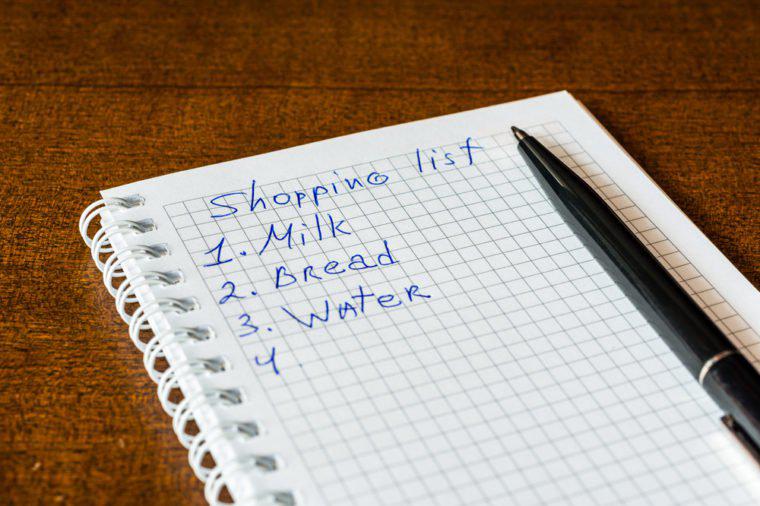 Shopping list
1. Milk
2. Bread
3. Water
4.